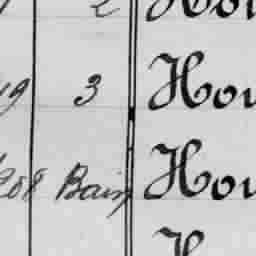 2 Hou
19 3 Hou
208 Bain Hou